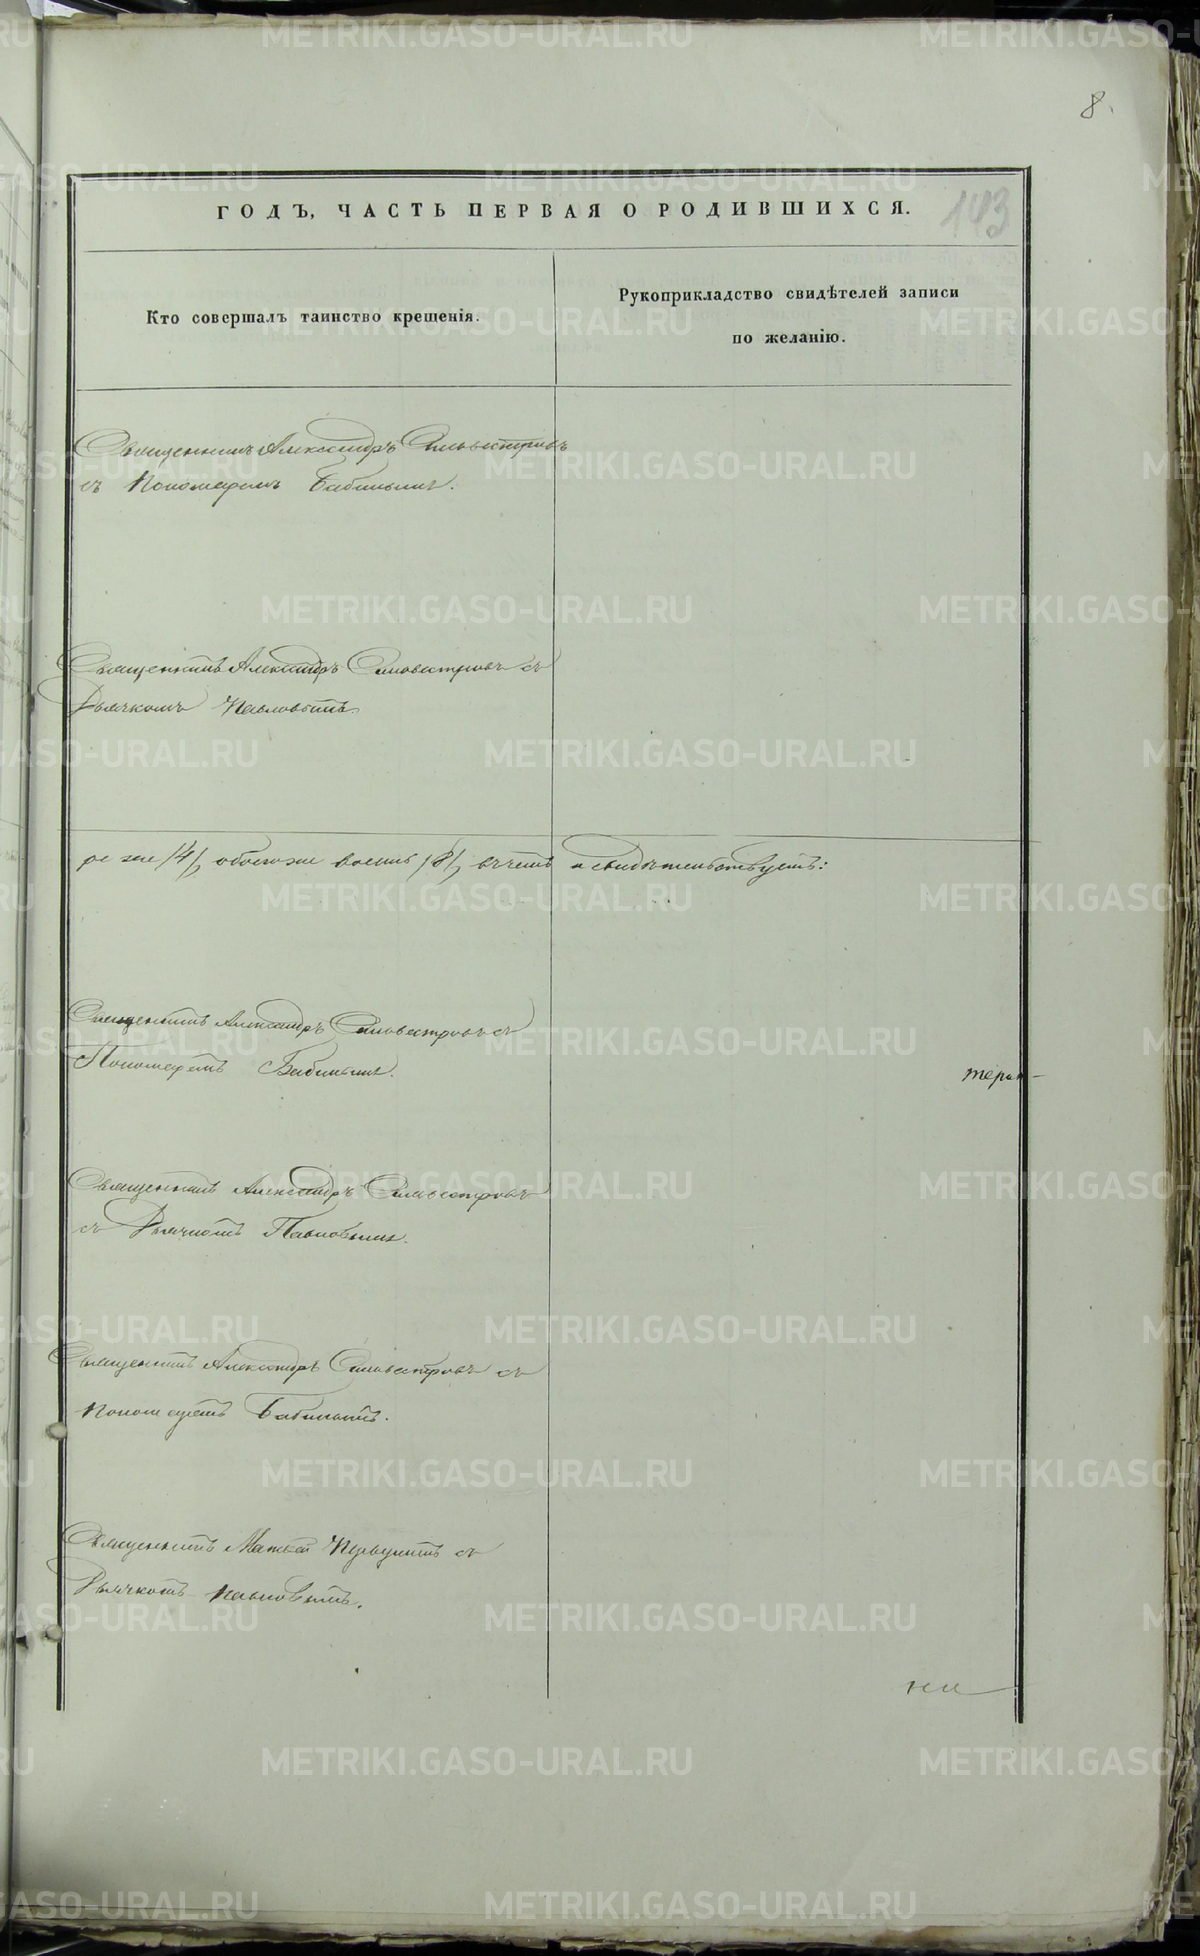 8.
ГОДЪ, ЧАСТЬ ПЕРВАЯ О РОДИВШИХСЯ.
143
Кто совершалъ таинство крещенія.
Рукоприкладство свидѣтелей записи
по желанію.
Священникъ Александръ Сильвестровъ
съ Пономаремъ Бабинымъ.
Священникъ Александръ Сильвестровъ съ
Дьячкомъ Павловымъ.
ре же /4/, обоего же восемь /8/, въ чемъ и свидѣтельствуемъ:
Священникъ Александръ Сильвестровъ съ
Пономаремъ Бабинымъ.
Священникъ Александръ Сильвестровъ
съ Дьячкомъ Павловымъ.
Священникъ Александръ Сильвестровъ съ
Пономаремъ Бабинымъ.
Священникъ Матвей съ
Дьячкомъ Павловымъ.
METRIKI.GASO-URAL.RU